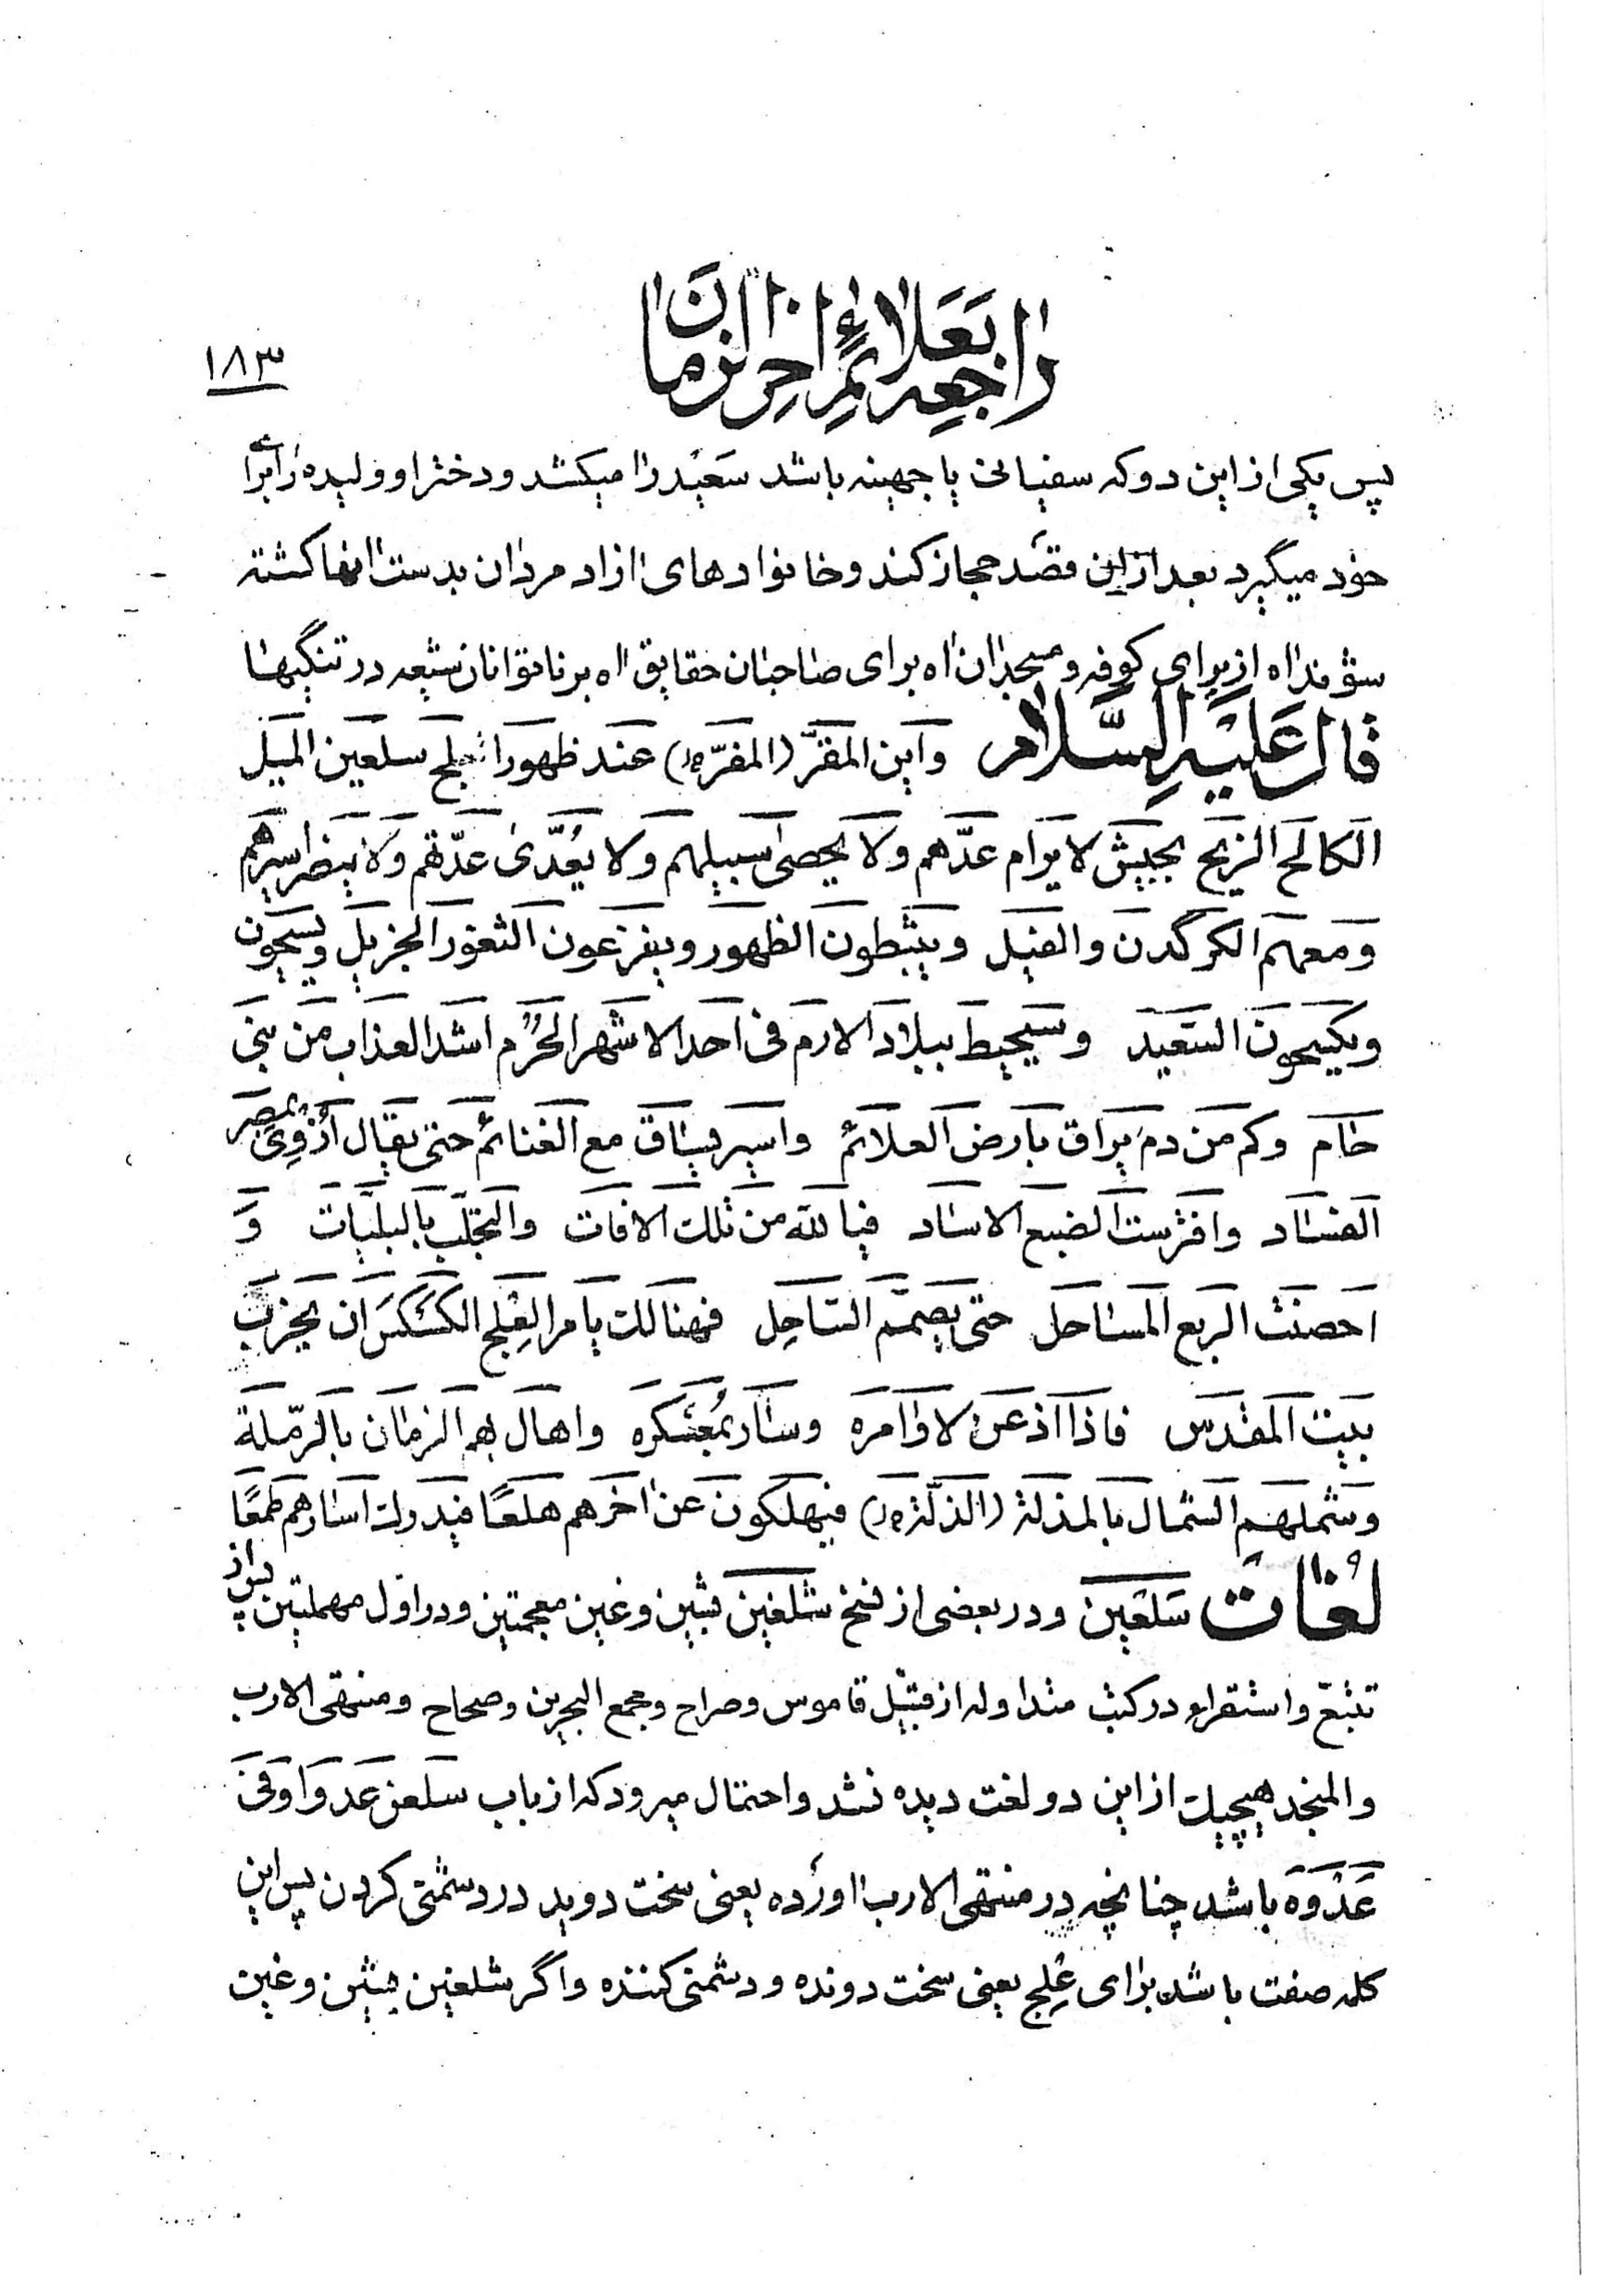 راجعه بعلائم اخر الزمان
۱۸۳
پس یکی از این دو که سفیانی یا جهینه باشد سعید را میکشد و دختر او ولیده را برای
خود میگیرد بعد از این قصد حجاز کند و خانوادهای ازاد مردان بدست انها کشته
شوند اه از برای کوفه و مسجد ان اه برای صاحبان حقایق اه بر ناتوانان شیعه در تنگیها
قال علیه السلام واین المقر (المفرّ ول) عند ظهور العلج سلعین المیل
الکالح الزیح بجیش لا یرام عدّهم ولا یحصی اسبیلهم ولا یعدّی عدّتهم ولا ینضر اسیرهم
ومعهم الکرگدن والفیل ویثبطون الظهور ویفزعون الثغور الجزیل ویسیحون
ویکسحون السعید وسیحیط ببلاد الارم فی احد الاشهر الحرم اشد العذاب من بنی
حام وکم من دم یراق بارض العلائم واسیر یساق مع الغنائم حتی یقال اروی بمصر
الفساد وافترست الضبع الاساد فیالله من تلک الافات والتجلب بالبلیات و
احصنت الربع المساحل حتی یصمم الساحل فهنالک یامر العلج الکسکس ان یخرب
بیت المقدس فاذا اذعن لاوامره وسار بمعسکره واهال بهم الزمان بالرّملة
وشملهم الشمال بالمذلة (الذلّة ول) فیهلکون عن اخرهم هلعًا فیدرک اسارهم طمعًا
لغات سلعین و در بعضی از نسخ شلغین بشین و غین معجمتین و در اول مهملتین پس از
تتبّع و استقراء در کتب متداوله از قبیل قاموس و صراح و مجمع البحرین و صحاح و منتهی الارب
و المنجد هیچیک از این دو لغت دیده نشد و احتمال میرود که از باب سلعن عدوا و فی
عدوه باشد چنانچه در منتهی الارب اورده یعنی سخت دوید در دشمنی کردن پس این
کلمه صفت باشد برای علج یعنی سخت دونده و دشمنی کننده و اگر شلغین بشین و غین